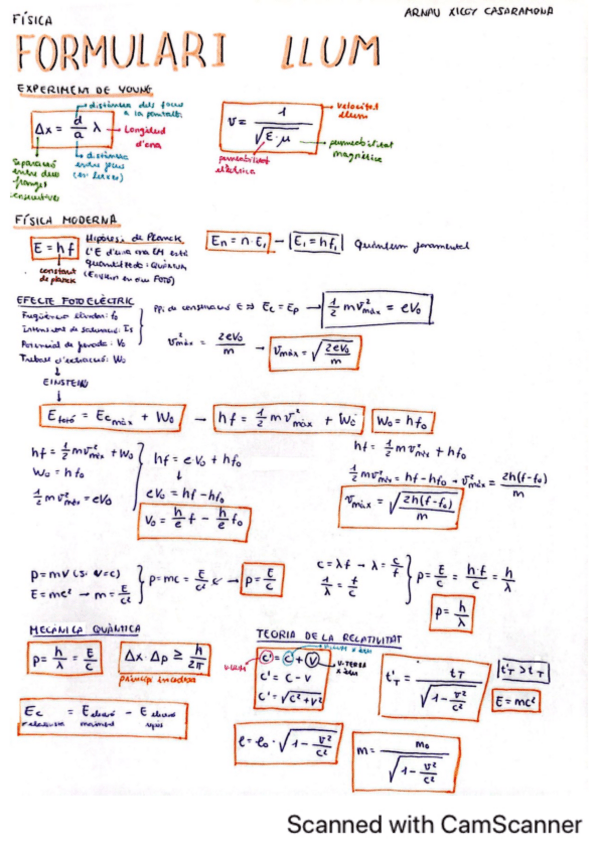 FÍSICA
ARNAU XICOY CASARAMONA
FORMULARI LLUM
EXPERIMENT DE YOUNG
distància dels focus
a la pantalla
Δx = d/a λ
Longitud
d'ona
distància
entre focus
Separació
entre dues
franges
consecutives
v = 1/√(ε·μ)
velocitat
llum
permeabilitat
magnètica
FÍSICA MODERNA
E = hf
constant
de planck
Hipòtesi de Planck
L'E d'una ona EM està
quantificada: QUÀNTUM
En = n·E₁ → E₁ = hf₁ Quàntum fonamental
EFECTE FOTOELÈCTRIC
Freqüència llindar: f₀
Intensitat de saturació: Is
Potencial de frenada: V₀
Treball d'extracció: W₀
↓
EINSTEIN
↓
Ppi. de conservació E ⇒ Ec = Ep → 1/2 mv²màx = eV₀
v²màx = 2eV₀/m → vmàx = √(2eV₀/m)
Efotó = Ecmàx + W₀ → hf = 1/2 mv²màx + W₀
W₀ = hf₀
hf = 1/2 mv²màx + W₀
W₀ = hf₀
1/2 mv²màx = eV₀
hf = e·V₀ + hf₀
↓
eV₀ = hf - hf₀
V₀ = h/e f - h/e f₀
hf = 1/2 mv²màx + hf₀
1/2 mv²màx = hf - hf₀ → v²màx = 2h(f-f₀)/m
vmàx = √(2h(f-f₀)/m)
p = mv (si v=c)
E = mc² → m = E/c²
p = mc = E/c² c → p = E/c
c = λf → λ = c/f
1/λ = f/c
p = E/c = h·f/c = h/λ
p = h/λ
MECÀNICA QUÀNTICA
p = h/λ = E/c
Δx · Δp ≥ h/2π
principi incertesa
Ec = Electró - Electró
relativista
TEORIA DE LA RELATIVITAT
c' = c + v
v.TERRA
c' = c - v
c' = √(c²+v²)
t'T = tT/√(1 - v²/c²)
t'T > tT
E = mc²
ℓ = ℓ₀ · √(1 - v²/c²)
m = m₀/√(1 - v²/c²)
Scanned with CamScanner